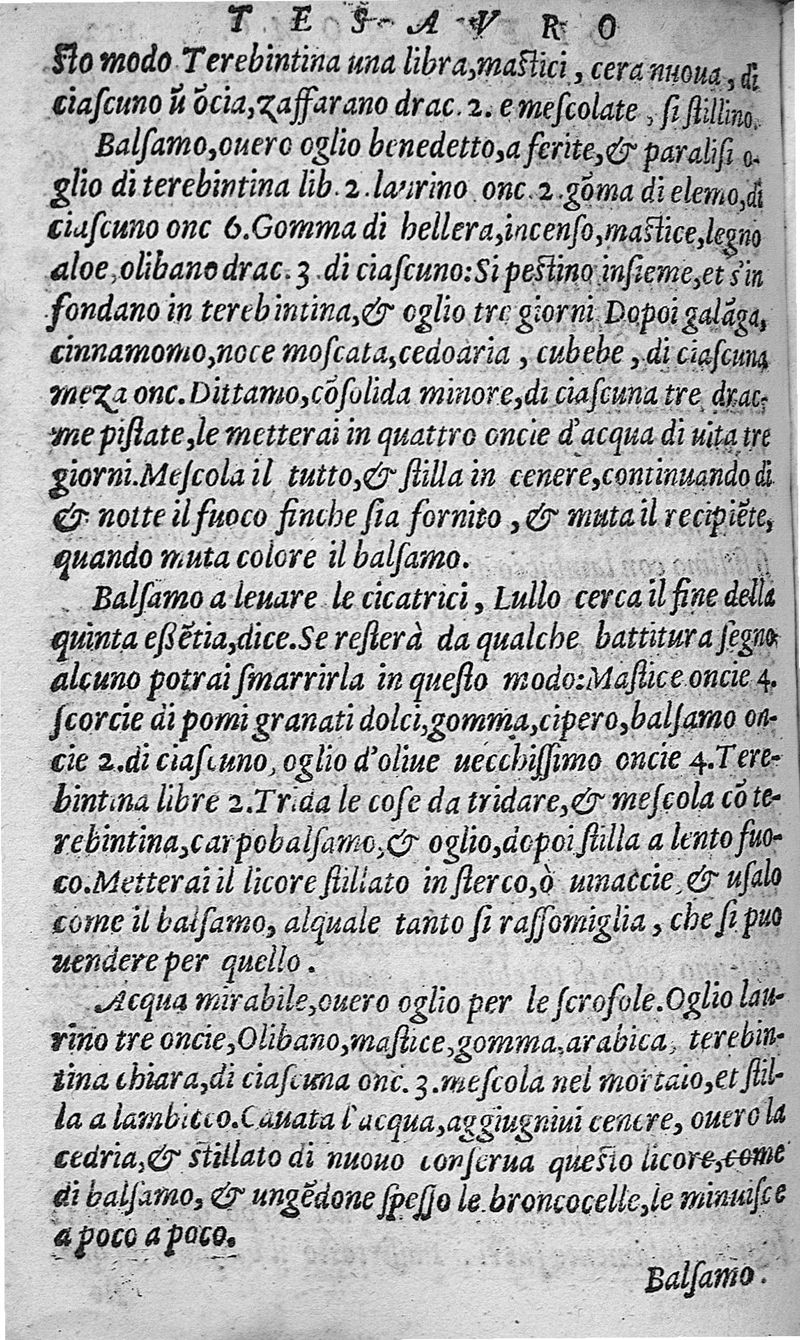 TESAVRO
ſto modo Terebintina una libra,maſtici, cera nuoua, di
ciaſcuno ũ õcia,zaffarano drac. 2. e meſcolate, ſi ſtillino.
Balſamo,ouero oglio benedetto,a ferite,& paraliſi o-
glio di terebintina lib. 2. laurino onc. 2. gõma di elemo,di
ciaſcuno onc 6. Gomma di hellera,incenſo,maſtice,legno
aloe,olibano drac. 3 di ciaſcuno: Si peſtino inſieme,et s'in
fondano in terebintina,& oglio tre giorni Dopoi galãga,
cinnamomo,noce moſcata,cedoaria, cubebe, di ciaſcuna
meza onc. Dittamo,cõſolida minore,di ciaſcuna tre drac-
me piſtate,le metterai in quattro oncie d'acqua di uita tre
giorni. Meſcola il tutto,& ſtilla in cenere,continuando di
& notte il fuoco finche ſia fornito, & muta il recipiẽte,
quando muta colore il balſamo.
Balſamo a leuare le cicatrici, Lullo cerca il fine della
quinta eßẽtia,dice. Se reſterà da qualche battitura ſegno
alcuno potrai ſmarrirla in queſto modo: Maſtice oncie 4.
ſcorcie di pomi granati dolci,gomma,cipero,balſamo on-
cie 2. di ciaſcuno, oglio d'oliue uecchiſſimo oncie 4. Tere-
bintina libre 2. Trida le coſe da tridare,& meſcola cõ te-
rebintina,carpobalſamo,& oglio,dopoi ſtilla a lento fuo-
co. Metterai il licore ſtillato in ſterco,ò uinaccie, & uſalo
come il balſamo, alquale tanto ſi raſſomiglia, che ſi puo
uendere per quello.
Acqua mirabile,ouero oglio per le ſcrofole. Oglio lau-
rino tre oncie,Olibano,maſtice,gomma,arabica, terebin-
tina chiara,di ciaſcuna onc. 3. meſcola nel mortaio,et ſtil-
la a lambicco. Cauata l'acqua,aggiugniui cenere, ouero la
cedria,& ſtillato di nuouo conſerua queſto licore,come
di balſamo, & ungẽdone ſpeſſo le broncocelle,le minuiſce
a poco a poco.
Balſamo.